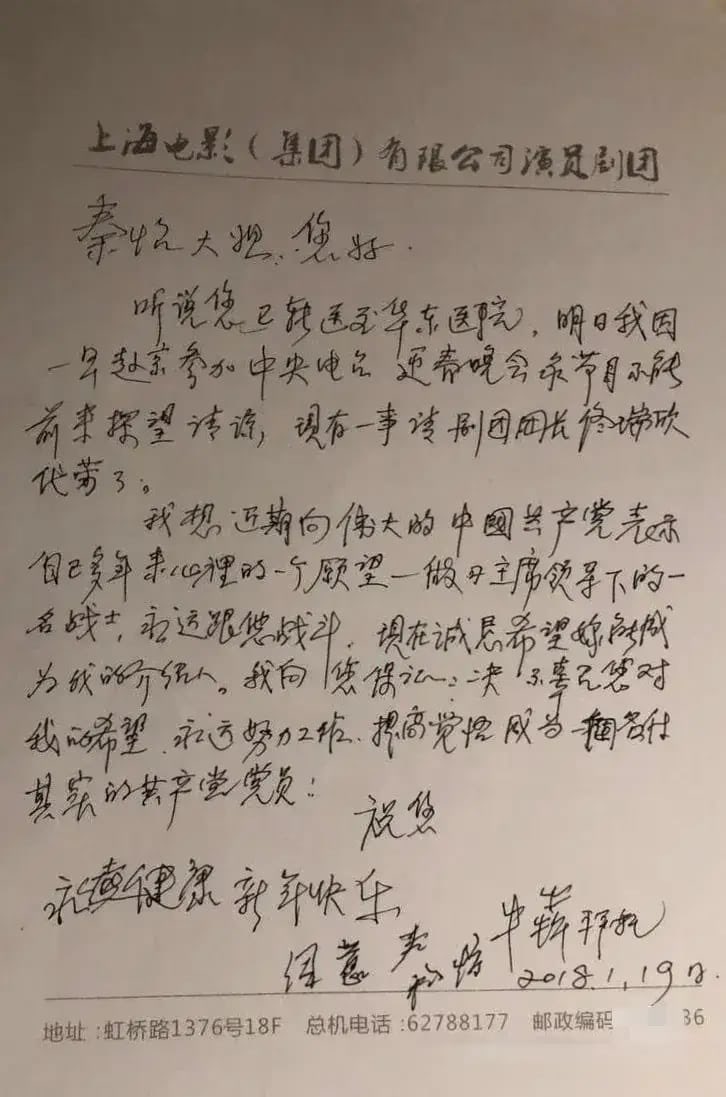 上海电影(集团)有限公司演员剧团
秦怡大姐:您好.
听说您已转送至华东医院,明日我因
一早赴京参加中央电台 迎春晚会录节目不能
前来探望请谅,现有一事请剧团团长佟瑞欣
代劳了。
我想近期向伟大的中國共产党表示
自己多年来心裡的一个愿望—做习主席领导下的一
名战士,永远跟您战斗.现在诚恳希望您能成
为我的介绍人。我向 您保证:决不辜负您对
我的希望.永远努力工作.提高觉悟成为一個名付
其实的共产党党员!
祝您
永远健康 新年快乐
牛犇 拜托
2018.1.19日
地址:虹桥路1376号18F 总机电话:62788177 邮政编码 36